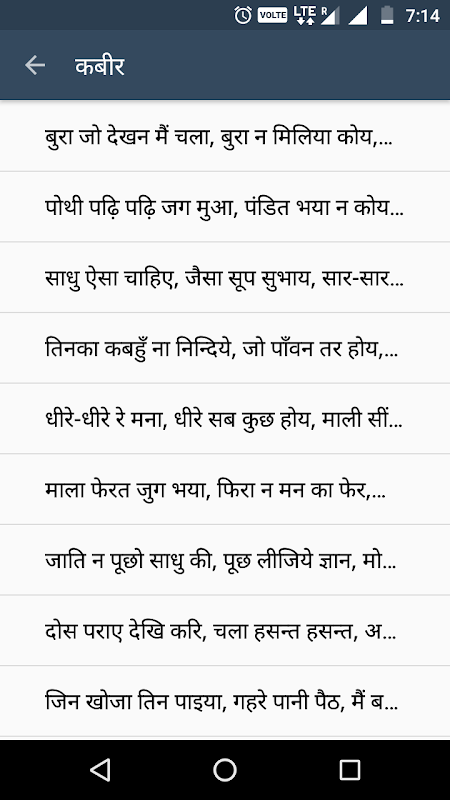 VOLTE LTE R 7:14
कबीर
बुरा जो देखन मैं चला, बुरा न मिलिया कोय,...
पोथी पढ़ि पढ़ि जग मुआ, पंडित भया न कोय...
साधु ऐसा चाहिए, जैसा सूप सुभाय, सार-सार...
तिनका कबहुँ ना निन्दिये, जो पाँवन तर होय,...
धीरे-धीरे रे मना, धीरे सब कुछ होय, माली सीं...
माला फेरत जुग भया, फिरा न मन का फेर,...
जाति न पूछो साधु की, पूछ लीजिये ज्ञान, मो...
दोस पराए देखि करि, चला हसन्त हसन्त, अ...
जिन खोजा तिन पाइया, गहरे पानी पैठ, मैं ब...